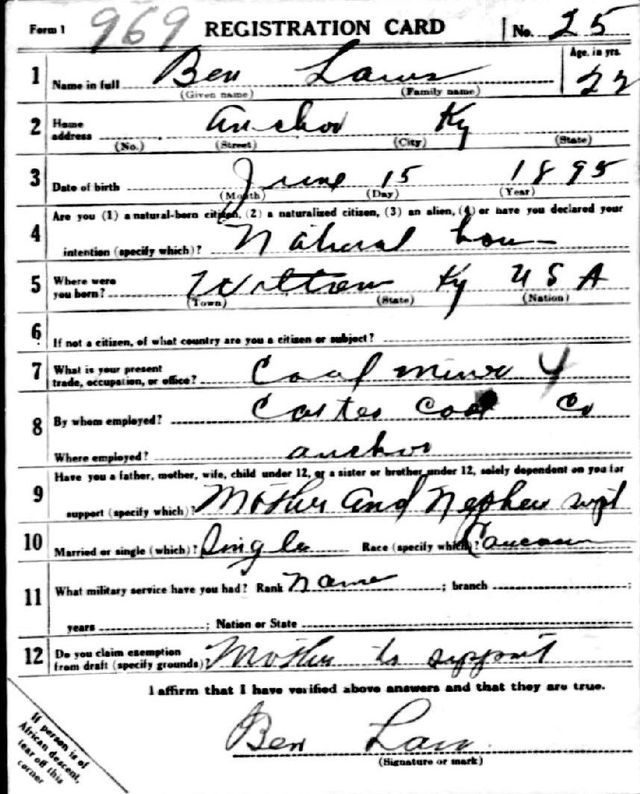 Form 1 969 REGISTRATION CARD No. 25
Age, in yrs.
1 Name in full Ben Laws 22
(Given name) (Family name)
2 Home address Anchor Ky
(No.) (Street) (City) (State)
3 Date of birth June 15 1895
(Month) (Day) (Year)
4 Are you (1) a natural-born citizen, (2) a naturalized citizen, (3) an alien, (4) or have you declared your
intention (specify which)? Natural born
5 Where were you born? Ky U S A
(Town) (State) (Nation)
6 If not a citizen, of what country are you a citizen or subject?
7 What is your present trade, occupation, or office? Coal miner 4
8 By whom employed? Coal Co
Where employed? anchor
9 Have you a father, mother, wife, child under 12, or a sister or brother under 12, solely dependent on you for
support (specify which)? Mother and Nephew
10 Married or single (which)? Single Race (specify which)? Caucasian
11 What military service have you had? Rank None ; branch ;
years ; Nation or State
12 Do you claim exemption from draft (specify grounds)? Mother to support
I affirm that I have verified above answers and that they are true.
Ben Laws
(Signature or mark)
If person is of
African descent,
tear off this
corner